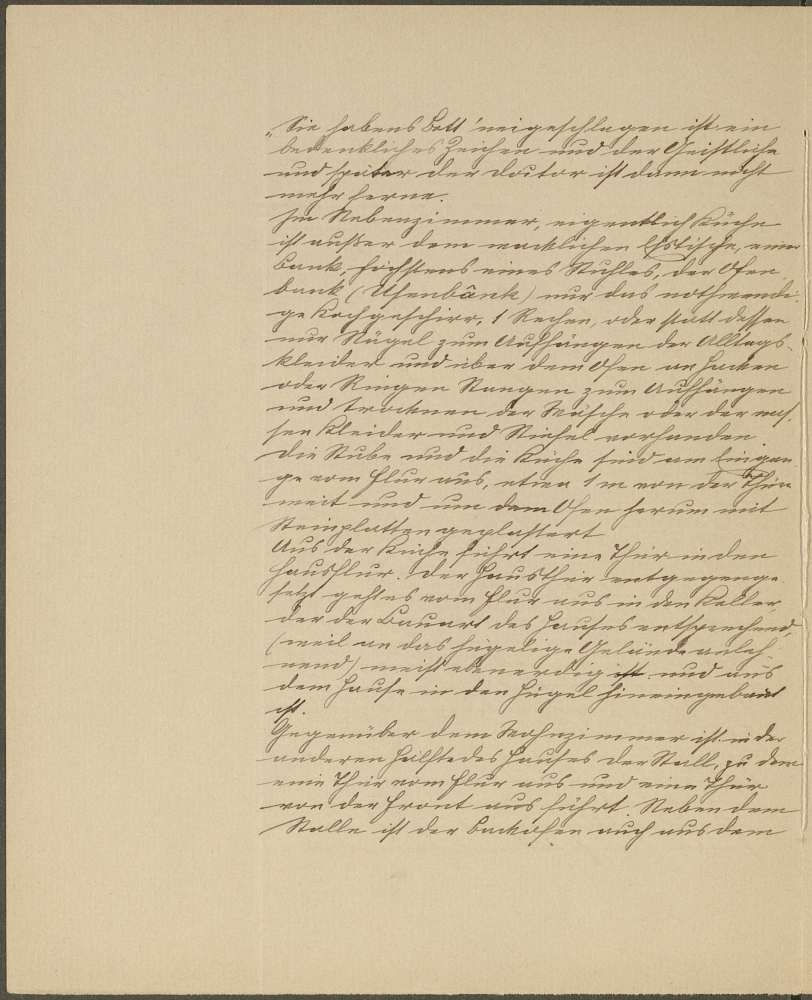 „Sie habens Bett 'neigeschlagen ist ein
bedenkliches Zeichen und der Geistliche
und später der Doctor ist dann nicht
mehr ferne.
Im Nebenzimmer, eigentlich Küche
ist außer dem wacklichen Esstische, einer
Bank, höchstens eines Stuhles, der Ofen
bank (Ufenbânk) nur das nothwendi-
ge Kochgeschirr, 1 Rechen, oder statt dessen
nur Nägel zum Aufhängen der Alltags-
kleider und über dem Ofen an Hacken
oder Ringen Stangen zum Aufhängen
und trocknen der Wäsche oder der nas-
sen Kleider und Stiefel vorhanden.
Die Stube und die Küche sind am Eingan-
ge vom Flur aus, etwa 1 m von der Thür
weit und um dem Ofen herum mit
Steinplatten geplastert
Aus der Küche führt eine Thür in den
Hausflur. Der Hausthür entgegenge-
setzt geht es vom Flur aus in den Keller,
der der Bauart des Hauses entsprechend,
(weil an das hügelige Gelände anleh-
nend) meist ebenerdig ist und aus
dem Hause in den Hügel hineingebaut
ist.
Gegenüber dem Wohnzimmer ist in der
anderen Hälfte des Hauses der Stall, zu dem
eine Thür vom Flur aus und eine Thür
von der Front aus führt. Neben dem
Stalle ist der Backofen auch aus dem